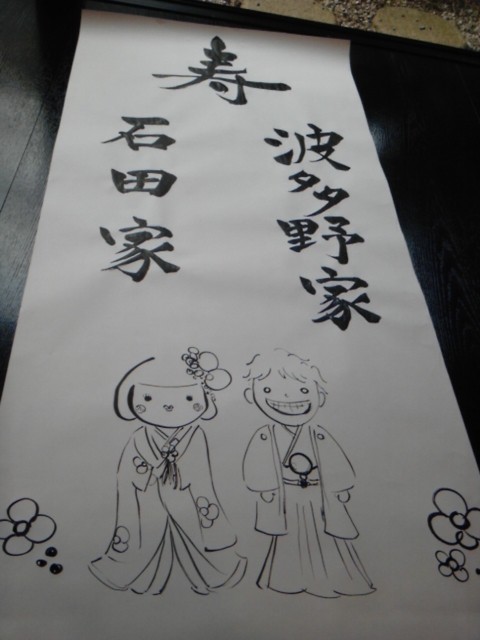 寿
波多野家
石田家